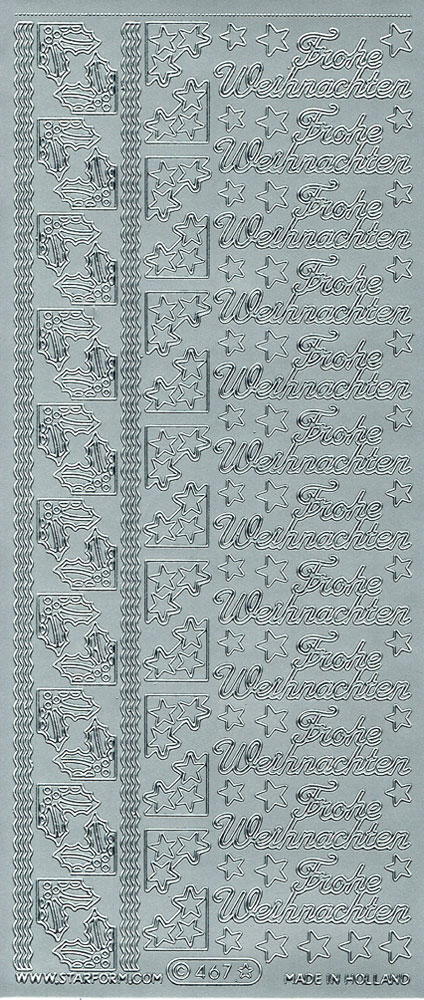 Frohe
Weihnachten
Frohe
Weihnachten
Frohe
Weihnachten
Frohe
Weihnachten
Frohe
Weihnachten
Frohe
Weihnachten
Frohe
Weihnachten
Frohe
Weihnachten
Frohe
Weihnachten
Frohe
Weihnachten
Frohe
Weihnachten
Frohe
Weihnachten
WWW.STARFORM.COM © 467 MADE IN HOLLAND